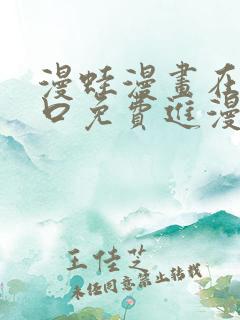 漫蛙漫畫在
口免費進漫
王佳芝
未经同意禁止转载